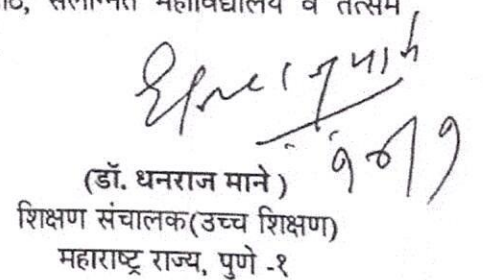 संलग्नित महाविद्यालय व तत्सम
(डॉ. धनराज माने )
शिक्षण संचालक(उच्च शिक्षण)
महाराष्ट्र राज्य, पुणे -१